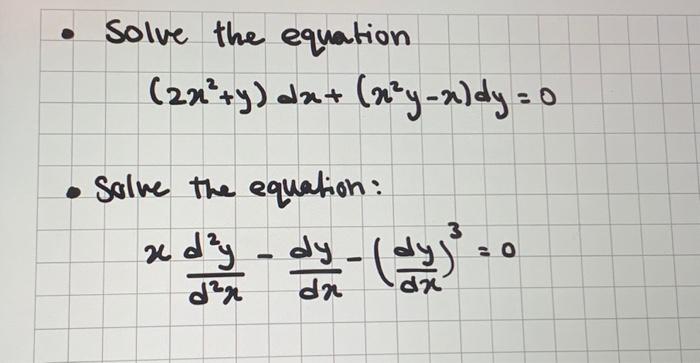 • Solve the equation
(2x²+y) dx + (x²y-x)dy = 0
• Solve the equation:
x d²y/d²x - dy/dx - (dy/dx)³ = 0